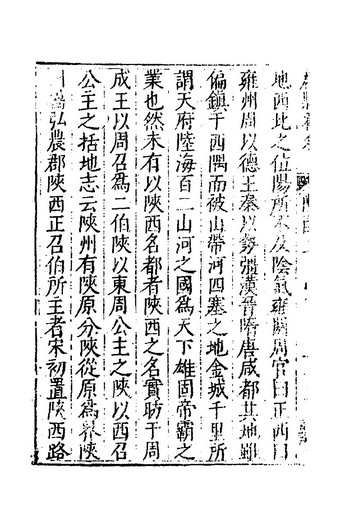 地西北之位陽所不及陰氣雍閼周官曰正西曰
雍州周以德王秦以勢彊漢晉隋唐咸都其地雖
偏鎮于西隅而被山帶河四塞之地金城千里所
謂天府陸海百二山河之國為天下雄固帝霸之
業也然未有以陝西名都者陝西之名實昉于周
成王以周召為二伯陝以東周公主之陝以西召
公主之括地志云陝州有陝原分陝從原為界陝
弘農郡陝西正召伯所主者宋初置陝西路